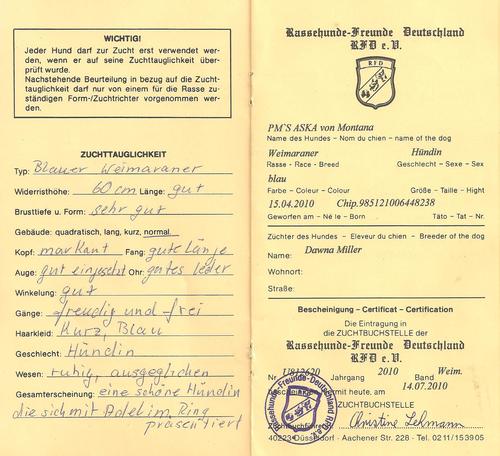 WICHTIG!
Jeder Hund darf zur Zucht erst verwendet wer-
den, wenn er auf seine Zuchttauglichkeit über-
prüft wurde.
Nachstehende Beurteilung in bezug auf die Zucht-
tauglichkeit darf nur von einem für die Rasse zu-
ständigen Form-/Zuchtrichter vorgenommen wer-
den.
ZUCHTTAUGLICHKEIT
Typ: Blauer Weimaraner
Widerristhöhe: 60 cm Länge: gut
Brusttiefe u. Form: sehr gut
Gebäude: quadratisch, lang, kurz, normal.
Kopf: markant Fang: gute Länge
Auge: gut eingesetzt Ohr: gutes Leder
Winkelung: gut
Gänge: freudig und frei
Haarkleid: Kurz, Blau
Geschlecht: Hündin
Wesen: ruhig, ausgeglichen
Gesamterscheinung: eine schöne Hündin
die sich mit Adel im Ring
präsentiert
Rassehunde-Freunde Deutschland
RFD e.V.
RFD
PM`S ASKA von Montana
Name des Hundes - Nom du chien - name of the dog
Weimaraner Hündin
Rasse - Race - Breed Geschlecht - Sexe - Sex
blau
Farbe - Colour - Colour Größe - Taille - Hight
15.04.2010 Chip.985121006448238
Geworfen am - Né le - Born Täto - Tat - Nr.
Züchter des Hundes - Eleveur du chien - Breeder of the dog
Name: Dawna Miller
Wohnort:
Straße:
Bescheinigung - Certificat - Certification
Die Eintragung in
die ZUCHTBUCHSTELLE der
Rassehunde-Freunde Deutschland
RFD e.V.
Nr. U812620 Jahrgang 2010 Band Weim.
mit heute, am 14.07.2010
ZUCHTBUCHSTELLE
Christine Lehmann
40223 Düsseldorf - Aachener Str. 228 - Tel. 0211/153905
Rassehunde-Freunde-Deutschland RFD e.V.